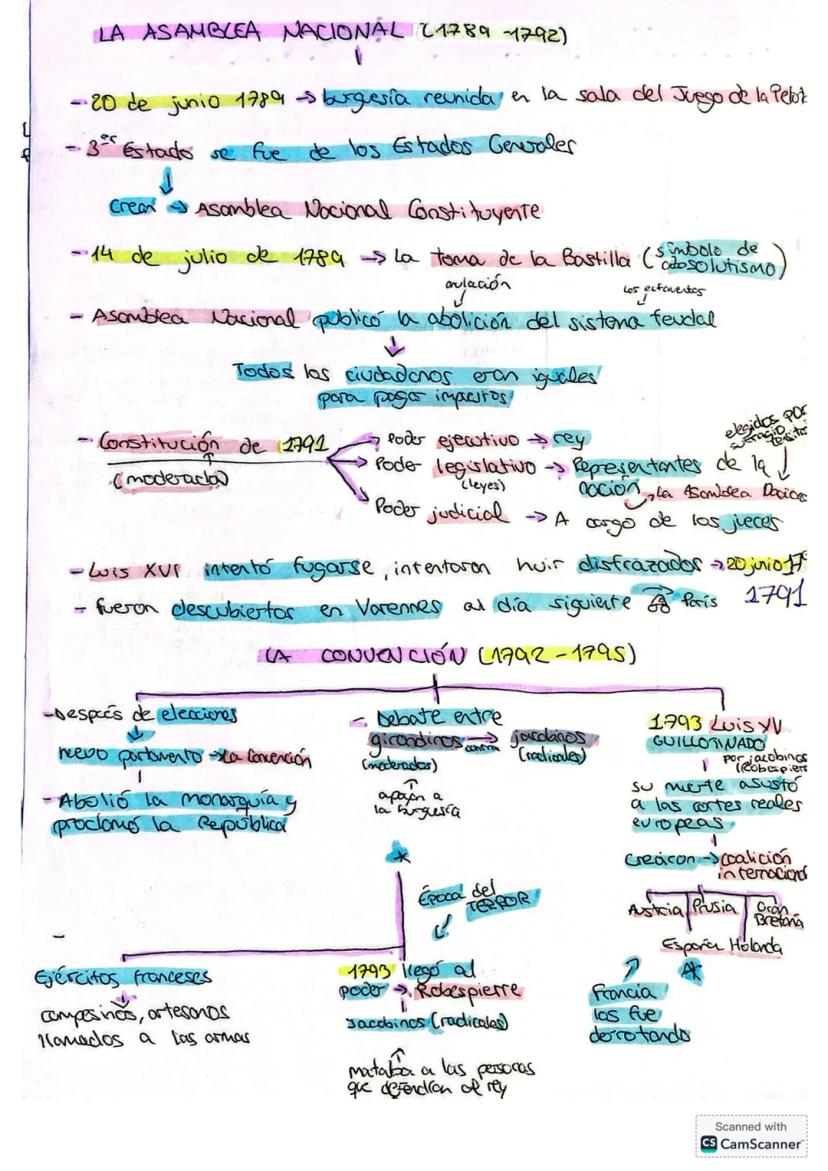 LA ASAMBLEA NACIONAL (1789 -1792)
- 20 de junio 1789 → burguesía reunida en la sala del Juego de la Pelot
- 3er Estado se fue de los Estados Generales
Crean → Asamblea Nacional Constituyente
- 14 de julio de 1789 → La toma de la Bastilla (símbolo de absolutismo)
anulación
los estamentos
- Asamblea Nacional publicó la abolición del sistema feudal
Todos los ciudadanos eran iguales
para pagar impuestos
- Constitución de 1791
(moderada)
→ Poder ejecutivo → rey
→ Poder legislativo → Representantes de la
(leyes)
nación → la Asamblea
elegidos por
→ Poder judicial → A cargo de los jueces
- Luis XVI intentó fugarse, intentaron huir disfrazados → 20 junio
1791
- fueron descubiertos en Varennes al día siguiente París
LA CONVENCIÓN (1792 - 1795)
- Después de elecciones
nuevo parlamento → La Convención
- Abolió la monarquía y
proclamó la República
- Debate entre
girondinos → contra jacobinos
(moderados) (radicales)
apoyan a
la burguesía
1793 Luis XV
GUILLOTINADO
por jacobinos
(Robespierr
su muerte asustó
a las cortes reales
europeas
Creación → coalición
internacional
Austria Prusia Gran
Bretaña
España Holanda
Francia
los fue
derrotando
Época del
TERROR
Ejércitos franceses
campesinos, artesanos
llamados a las armas
1793 llegó al
poder → Robespierre
Jacobinos (radicales)
mataba a las personas
que defendían al rey
Scanned with
CS CamScanner